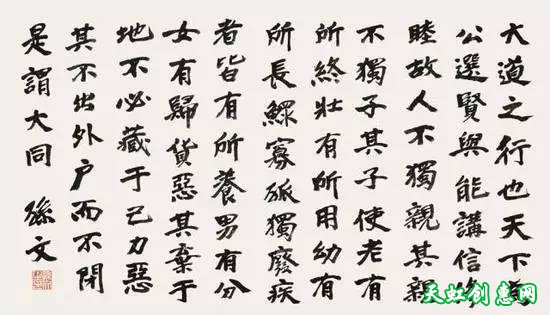 大道之行也天下為
公選賢與能講信修
睦故人不獨親其親
不獨子其子使老有
所終壯有所用幼有
所長鰥寡孤獨廢疾
者皆有所養男有分
女有歸貨惡其棄于
地不必藏于己力惡
其不出外户而不閉
是謂大同 孫文
天虹创意网